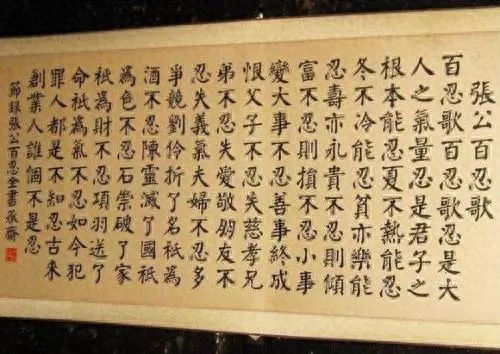 張公百忍歌
百忍歌百忍歌忍是大
人之氣量忍是君子之
根本能忍夏不熱能忍
冬不冷能忍貧亦樂能
忍壽亦永貴不忍則傾
富不忍則損不忍小事
變大事不忍善事終成
恨父子不忍失慈孝兄
弟不忍失愛敬朋友不
忍失義氣夫婦不忍多
爭競劉伶折了名衹為
酒不忍陳靈滅了國衹
為色不忍石崇破了家
衹為財不忍項羽送了
命衹為氣不忍如今犯
罪人都是不知忍古來
創業人誰個不是忍
節錄張公百忍全書 承齋